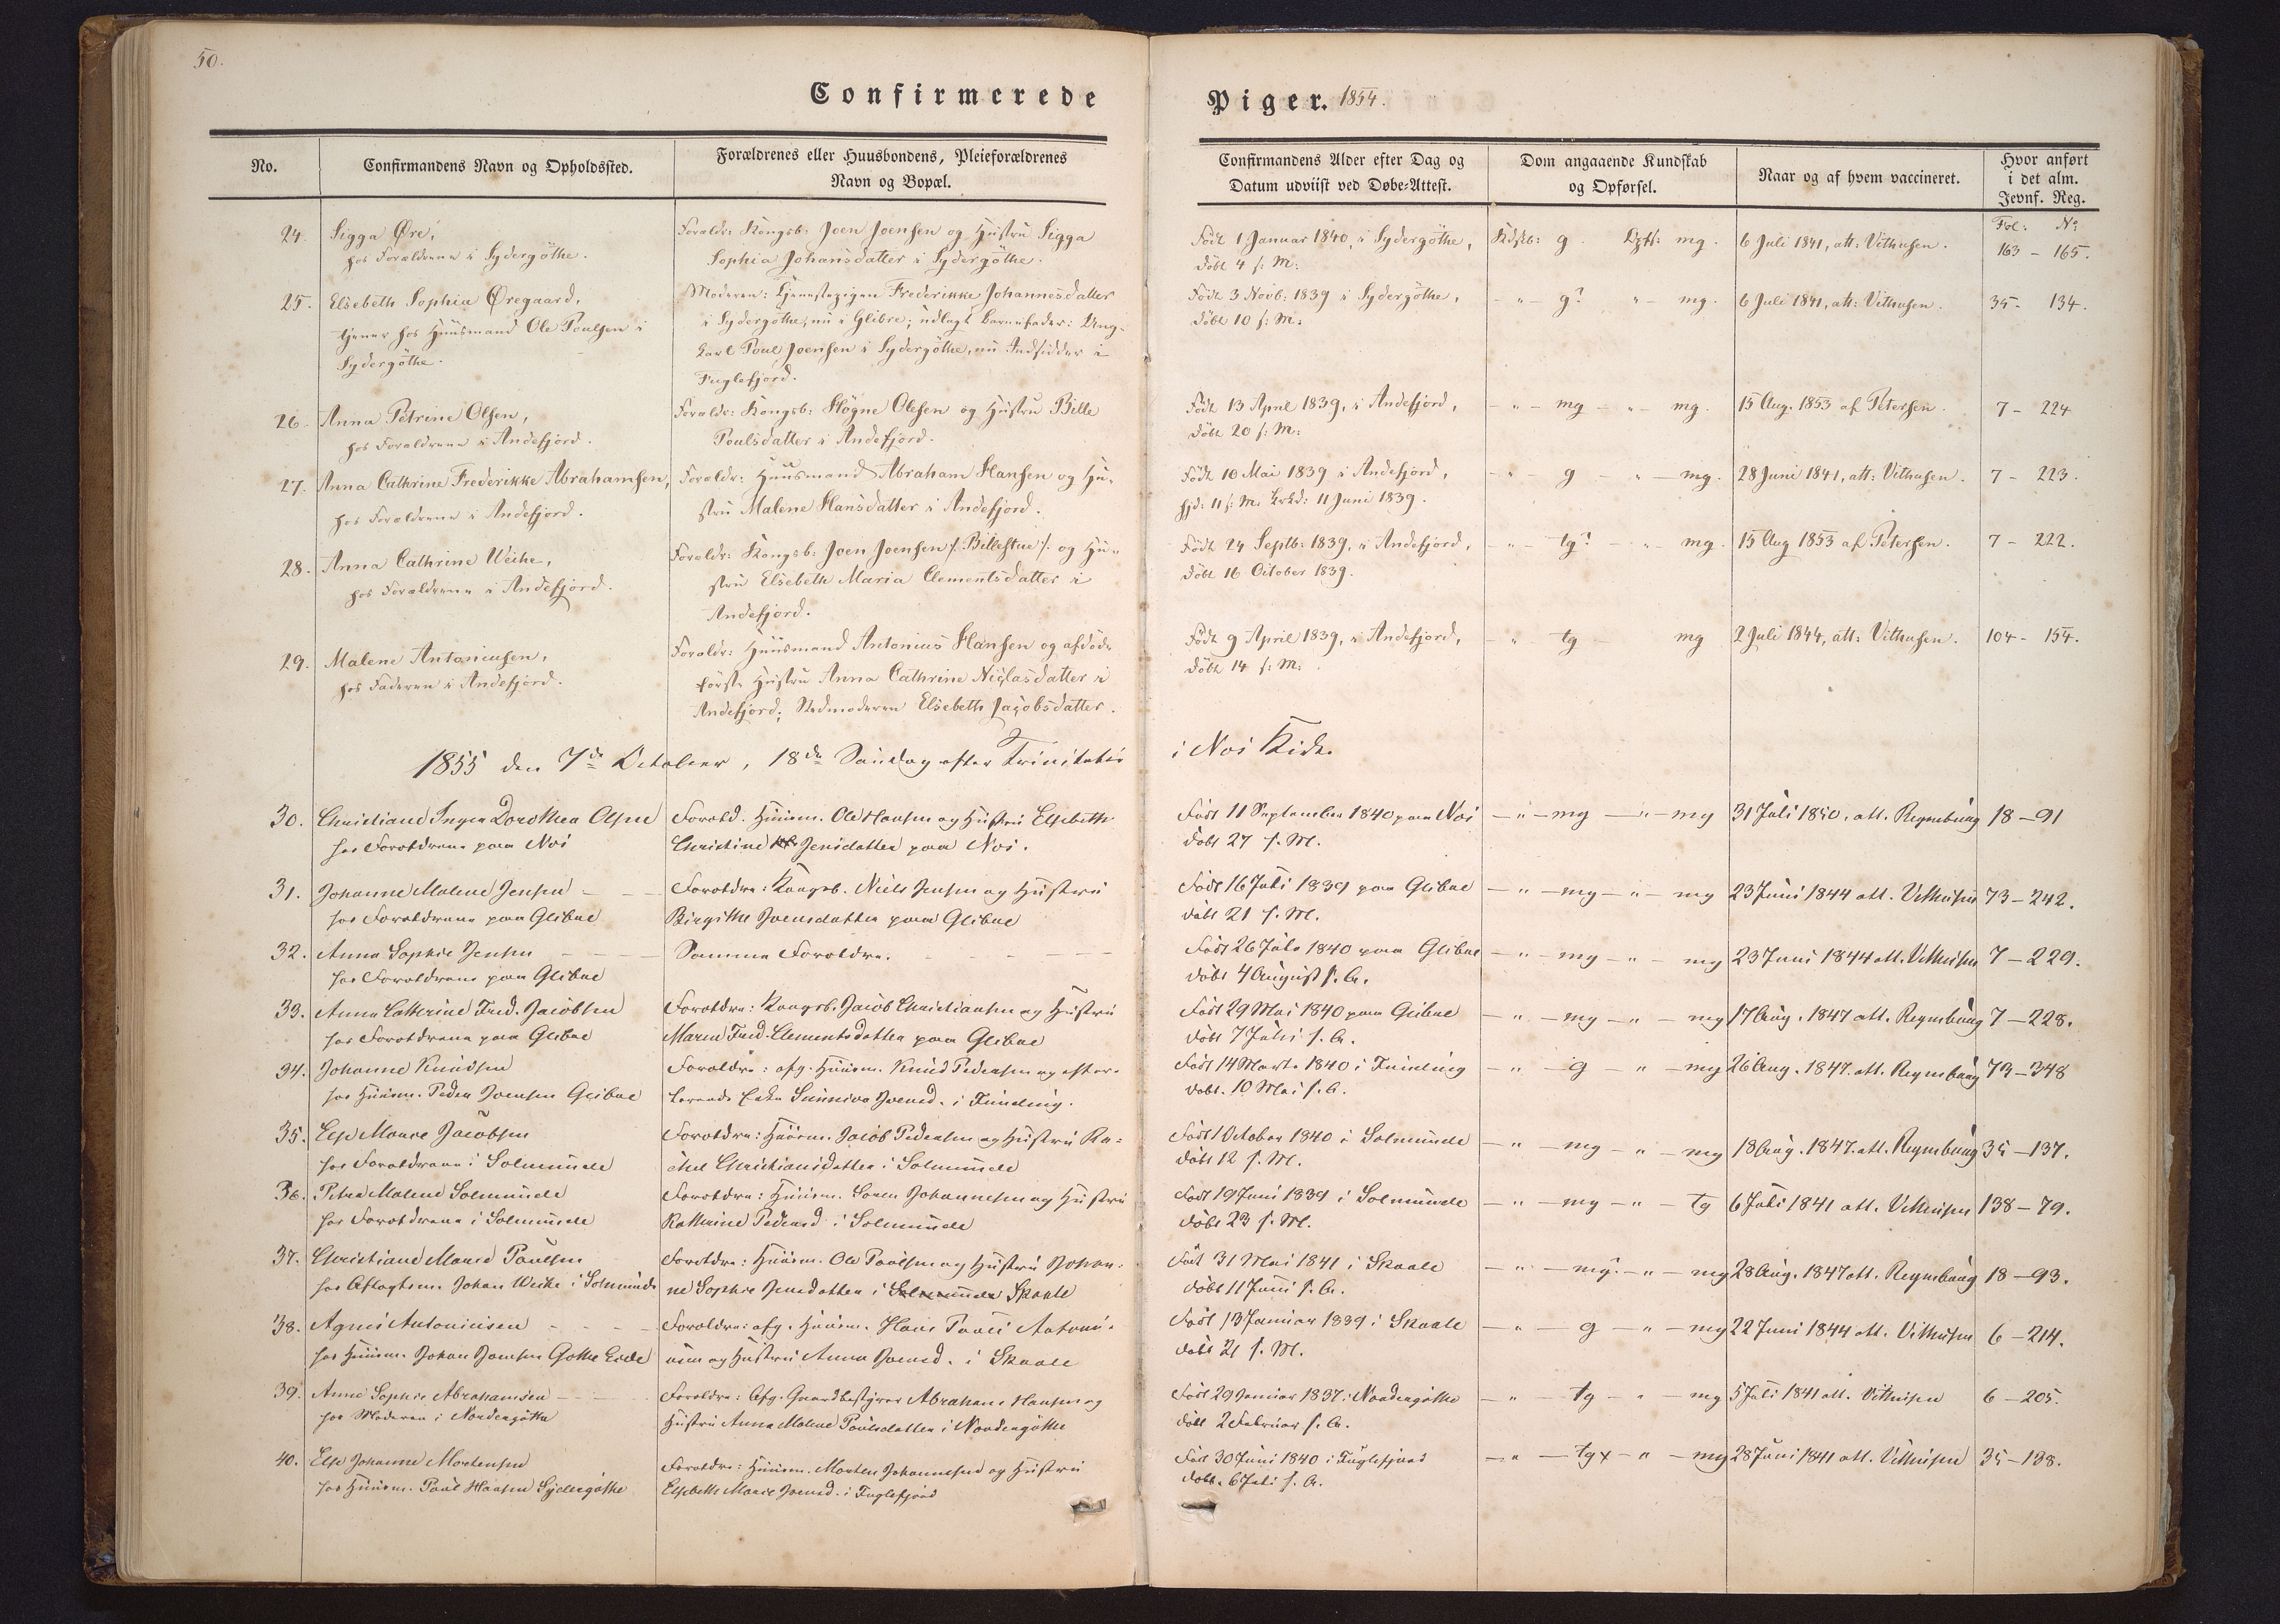 50.
Confirmerede
Piger. 1854.
No.
Confirmandens Navn og Opholdssted.
Forældrenes eller Huusbondens, Pleieforældrenes
Navn og Bopæl.
Confirmandens Alder efter Dag og
Datum udviist ved Døbe-Attest.
Dom angaaende Kundskab
og Opførsel.
Naar og af hvem vaccineret.
Hvor anført
i det alm.
Jevnf. Reg.
Fol: No:
24. Sigga Øre,
hos Forældrene i Sydergöthe.
Forældr: Kongsb: Joen Joensen og Hustru Sigga
Sophia Johansdatter i Sydergöthe.
Födt 1 Januar 1840, i Sydergöthe,
döbt 4 s: M:
Kdskb: g. Opfs: mg.
6 Juli 1841, att: Vithusen.
163 - 165.
25. Elsebeth Sophia Øregaard,
tjener hos Huusmand Ole Poulsen i
Sydergöthe.
Moderen: Tjenestepigen Frederikke Johannesdatter
i Sydergöthe, nu i Glibre; udlagt Barnefader: Ung-
karl Poul Joensen i Sydergöthe, nu Indsidder i
Fuglefjord.
Födt 3 Novb: 1839 i Sydergöthe,
döbt 10 s: M:
- " - g? " - mg.
6 Juli 1841, att: Vithusen.
35 - 134.
26. Anna Petrine Olsen,
hos Forældrene i Andefjord.
Forældr: Kongsb: Högne Olesen og Hustru Bille
Poulsdatter i Andefjord.
Födt 13 April 1839, i Andefjord,
döbt 20 s: M:
- " - mg - " - mg.
15 Aug. 1853 af Petersen.
7 - 224
27. Anna Cathrine Frederikke Abrahamsen,
hos Forældrene i Andefjord.
Forældr: Huusmand Abraham Hansen og Hu-
stru Malene Hansdatter i Andefjord.
Födt 10 Mai 1839 i Andefjord,
hjd: 11 s: M. Krkd: 11 Juni 1839.
- " - g - " - mg.
28 Juni 1841, att: Vithusen.
7 - 223.
28. Anna Cathrine Weihe,
hos Forældrene i Andefjord.
Forældr: Kongsb: Joen Joensen /: Billestue :/ og Hu-
stru Elsebeth Maria Clementsdatter i
Andefjord.
Födt 24 Septb: 1839, i Andefjord,
döbt 16 October 1839.
- " - tg? - " - mg.
15 Aug 1853 af Petersen.
7 - 222.
29. Malene Antoniusen,
hos Faderen i Andefjord.
Forældr: Huusmand Antonius Hansen og afdöde
förste Hustru Anna Cathrine Niclasdatter i
Andefjord; Stedmoderen Elsebeth Jacobsdatter.
Födt 9 April 1839, i Andefjord,
döbt 14 s: M:
- " - tg - mg
2 Juli 1844, att: Vithusen.
104 - 154.
1855 den 7de October, 18de Søndag efter Trinitatis
i Næs Kirke
30. Christiane Inger Dorothea Olsen
hos Forældrene paa Næs
Foræld. Huusm. Ole Hansen og Hustru Elsebeth
Christine Jensdatter paa Næs.
Født 11 September 1840 paa Næs
døbt 27 s. M.
- " - mg - " - mg
31 Juli 1850, att. Regenburg
18 - 91
31. Johanne Malene Jensen
hos Forældrene paa Glibre
Forældre: Kongsb. Niels Jensen og Hustru
Birgithe Joensdatter paa Glibre
Født 16 Juli 1839 paa Glibre
døbt 21 s. M.
- " - mg - " - mg
23 Juni 1844 att. Vithusen
73 - 242.
32. Anna Sophie Jensen
hos Forældrene paa Glibre
Samme Forældre.
Født 26 Juli 1840 paa Glibre
døbt 4 August s. A.
- " - mg - " - mg
23 Juni 1844 att. Vithusen
7 - 229.
33. Anna Cathrine Fred. Jacobsen
hos Forældrene paa Glibre
Forældre: Kongsb. Jacob Christiansen og Hustru
Maren Fred. Clementsdatter paa Glibre
Født 29 Mai 1840 paa Glibre
døbt 7 Juli s. A.
- " - mg - " - mg
17 Aug. 1847 att. Regenburg
7 - 228.
34. Johanne Knudsen
hos Huusm. Peder Joensen Glibre
Forældre: afg. Huusm. Knud Pedersen og efter-
levende Enke Sunniva Joensd. i Funding.
Født 14 Marts 1840 i Funding
døbt. 10 Mai s. A.
- " - g - " - mg
26 Aug. 1847. att. Regenburg
73 - 348
35. Else Marie Jacobsen
hos Forældrene i Solmunde
Forældre: Huusm. Jacob Pedersen og Hustru Ra-
chel Christiansdatter i Solmunde
Født 1 October 1840 i Solmunde
døbt 12 s. M.
- " - mg - " - mg
18 Aug. 1847. att. Regenburg
35 - 137.
36. Petra Malene Solmunde
hos Forældrene i Solmunde
Forældre: Huusm. Søren Johannesen og Hustru
Kathrine Pedersd. i Solmunde
Født 19 Juni 1839 i Solmunde
døbt 23 s. M.
- " - mg - " - tg
6 Juli 1841 att. Vithusen
138 - 79.
37. Christiane Marie Poulsen
hos Aftagtsm. Johan Weihe i Solmunde
Forældre: Huusm. Ole Poulsen og Hustru Johan-
ne Sophie Jensdatter i Solmunde Skaale
Født 31 Mai 1841 i Skaale
døbt 11 Juni s. A.
- " - mg? - " - mg
28 Aug. 1847 att. Regenburg
18 - 93.
38. Agnes Antoniusen
hos Huusm. Johan Joensen Gøthe Eide
Forældre: afg. Huusm. Hans Pauli Antoni-
usen og Hustru Anna Joensd. i Skaale
Født 13 Januar 1839 i Skaale
døbt 21 s. M.
- " - g - " - mg
22 Juni 1844 att. Vithusen
6 - 214.
39. Anne Sophie Abrahamsen
hos Moderen i Nordergøthe
Forældre: Afg. Gaardbestyrer Abraham Hansen og
Hustru Anna Malene Poulsdatter i Nordergøthe
Født 29 Januar 1837 i Nordergøthe
døbt 2 Februar s. A.
- " - tg - " - mg
5 Juli 1841 att. Vithusen
6 - 205.
40. Else Johanne Mortensen
hos Huusm. Poul Hansen Sydergøthe
Forældre: Huusm. Morten Johannesen og Hustru
Elsebeth Marie Joensd. i Fuglefjord
Født 30 Juni 1840 i Fuglefjord
døbt. 6 Juli s. A.
- " - tg x - " - mg
28 Juni 1841 att. Vithusen
35 - 138.